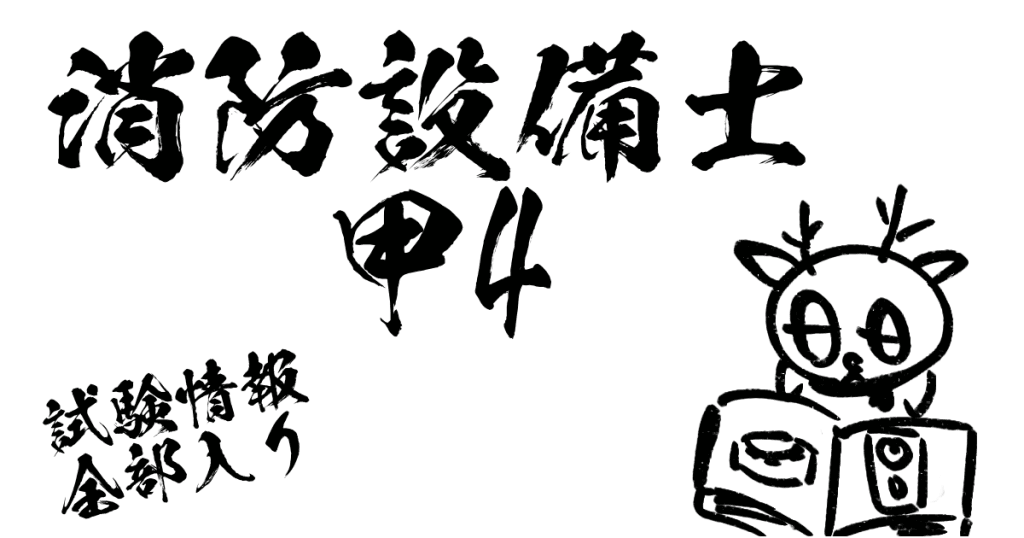 消防設備士
甲4
試験情報
全部入り